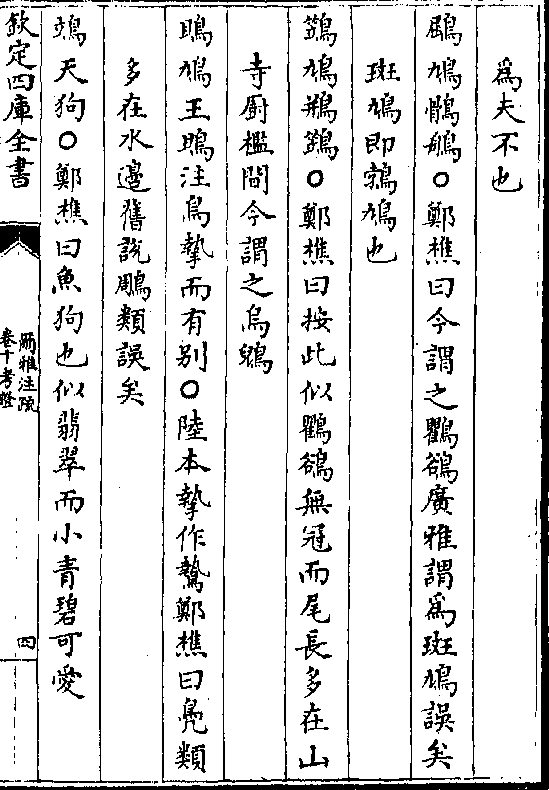 為夫不也
鶌鳩鶻鵃○鄭樵曰今謂之鸜鵒廣雅謂為斑鳩誤矣
斑鳩即鶉鳩也
鷑鳩鵧鷑○鄭樵曰按此似鸜鵒無冠而尾長多在山
寺廚檻間今謂之烏鵙
鴡鳩王鴡注鳥摯而有别○陸本摯作鷙鄭樵曰鳧類
多在水邊舊説鵰類誤矣
鴗天狗○鄭樵曰魚狗也似翡翠而小青碧可愛
欽定四庫全書
爾雅注疏
卷十考證
四